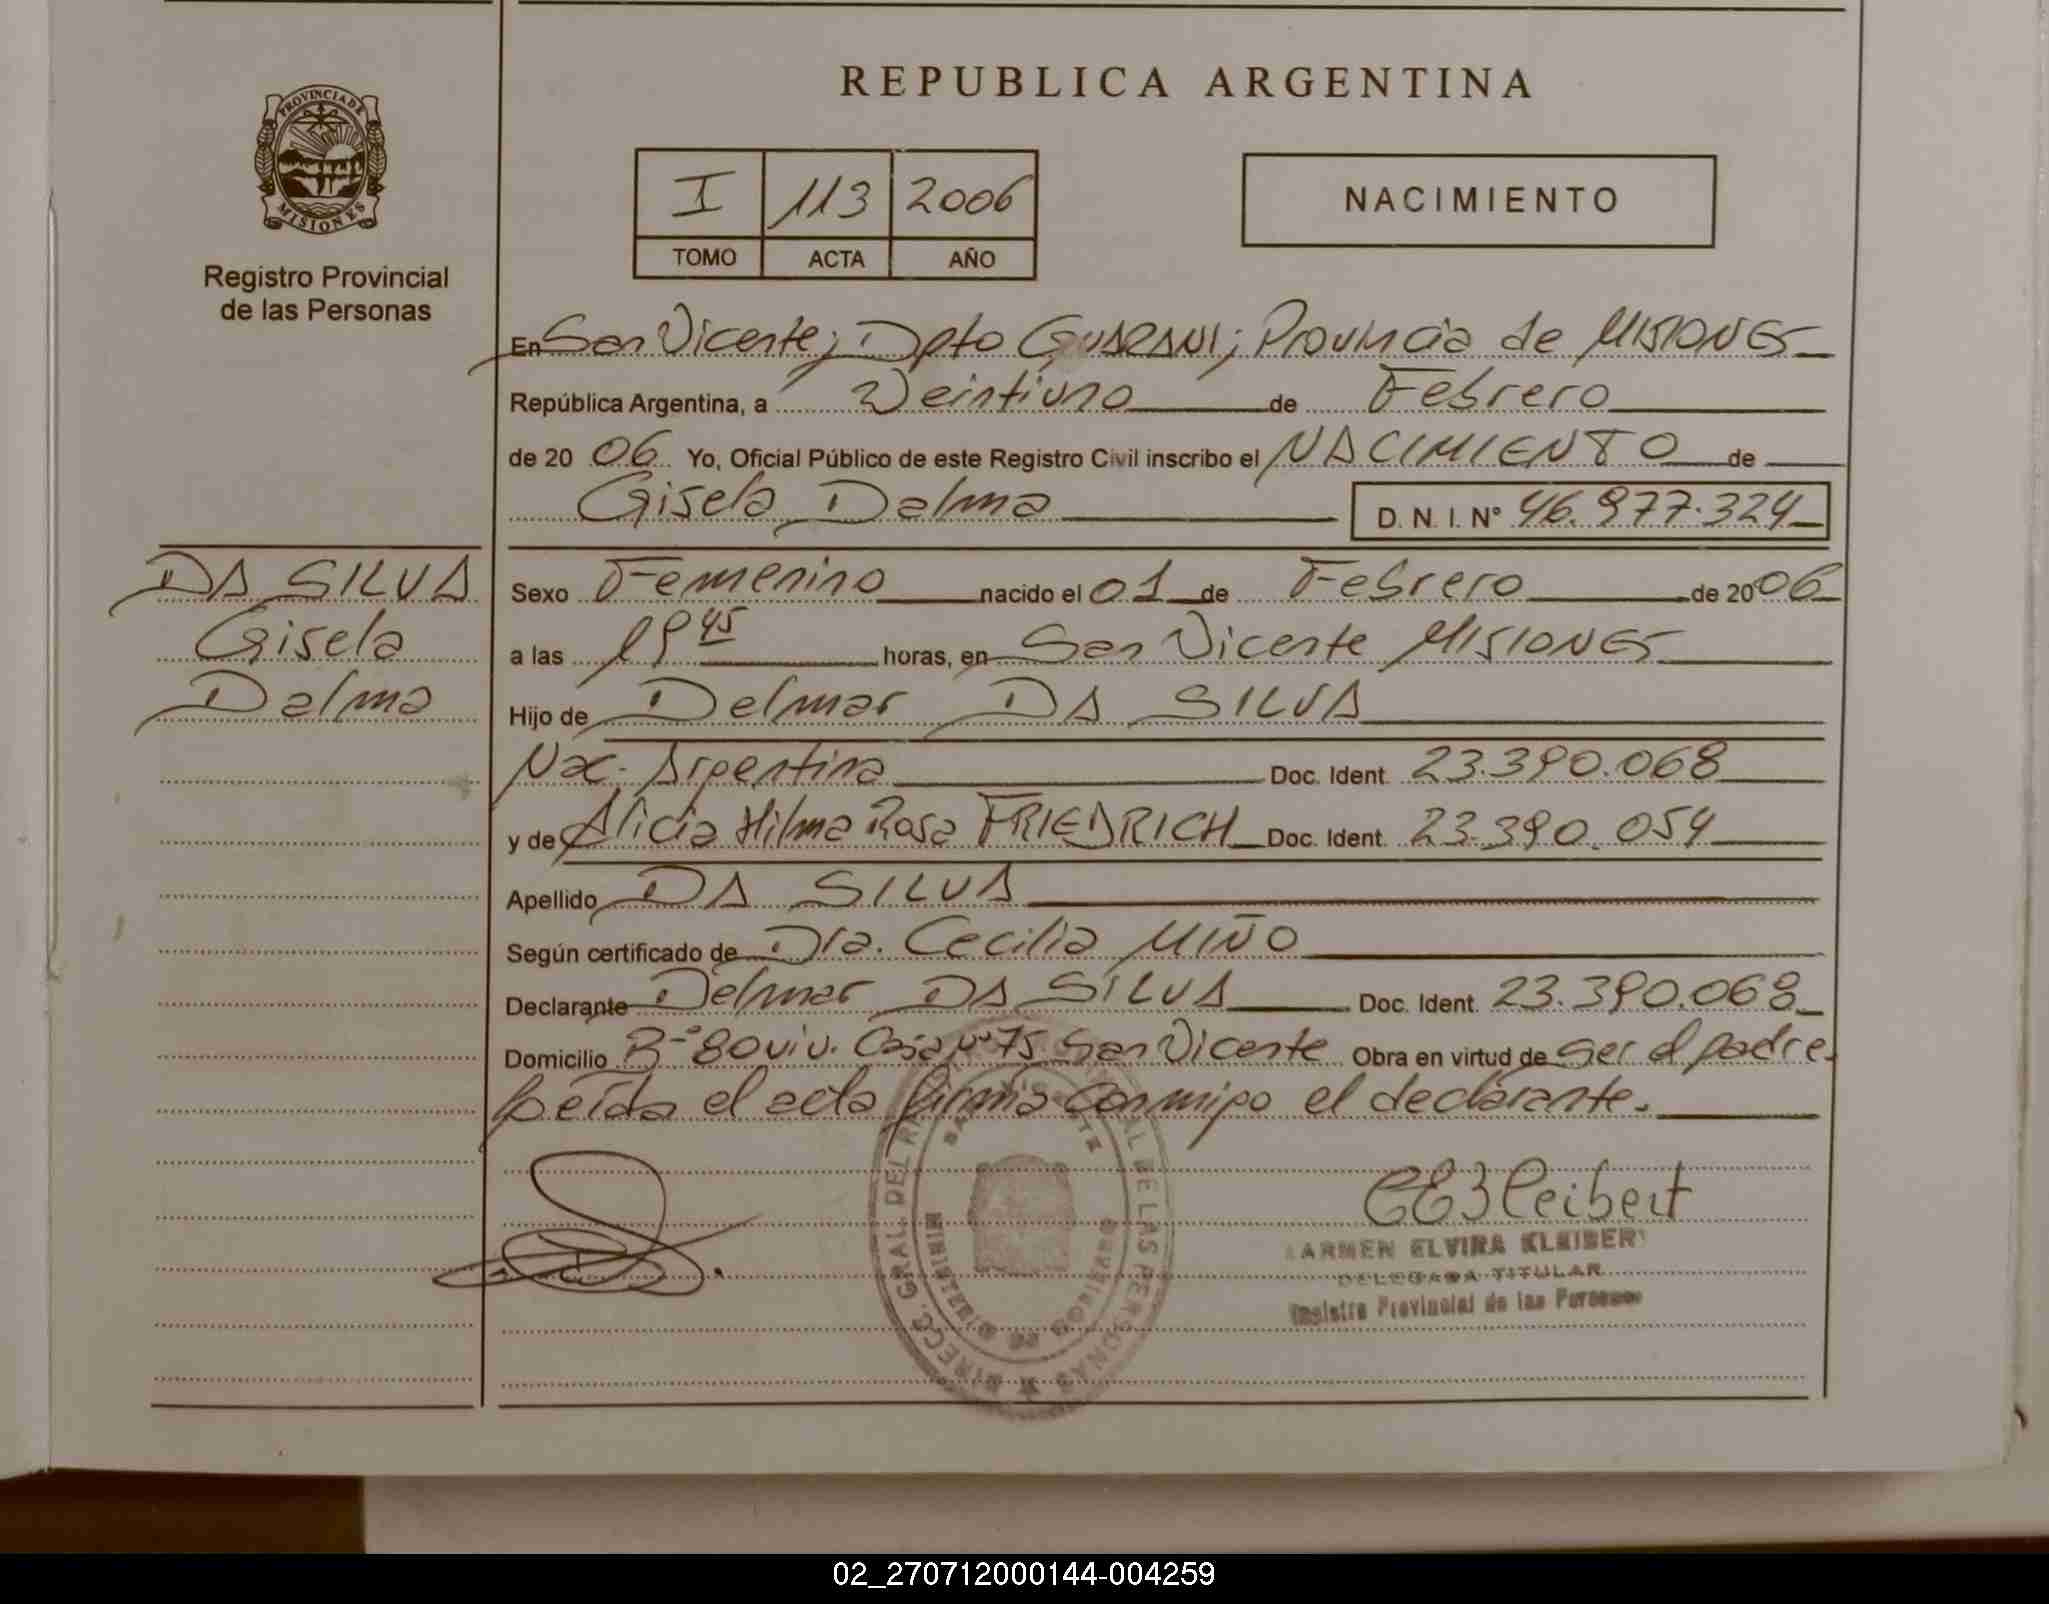 PROVINCIA DE
MISIONES
Registro Provincial
de las Personas
REPUBLICA ARGENTINA
I 113 2006
TOMO ACTA AÑO
NACIMIENTO
En San Vicente; Dpto GUARANI; Provincia de MISIONES
República Argentina, a Veintiuno de Febrero
de 20 06 Yo, Oficial Público de este Registro Civil inscribo el NACIMIENTO de
Gisela Dalma D. N. I. N° 46.977.324
DA SILVA
Gisela
Dalma
Sexo Femenino nacido el 01 de Febrero de 20 06
a las 19 45 horas, en San Vicente MISIONES
Hijo de Delmar DA SILVA
Nac. Argentina Doc. Ident. 23.390.068
y de Alicia Hilma Rosa FRIEDRICH Doc. Ident. 23.390.054
Apellido DA SILVA
Según certificado de Dra. Cecilia MIÑO
Declarante Delmar DA SILVA Doc. Ident. 23.390.068
Domicilio B° 80 viv. Casa n° 75 San Vicente Obra en virtud de ser el padre.
Leída el acta firma conmigo el declarante.
CARMEN ELVIRA KLEIBERT
DELEGADA TITULAR
Registro Provincial de las Personas
02_270712000144-004259